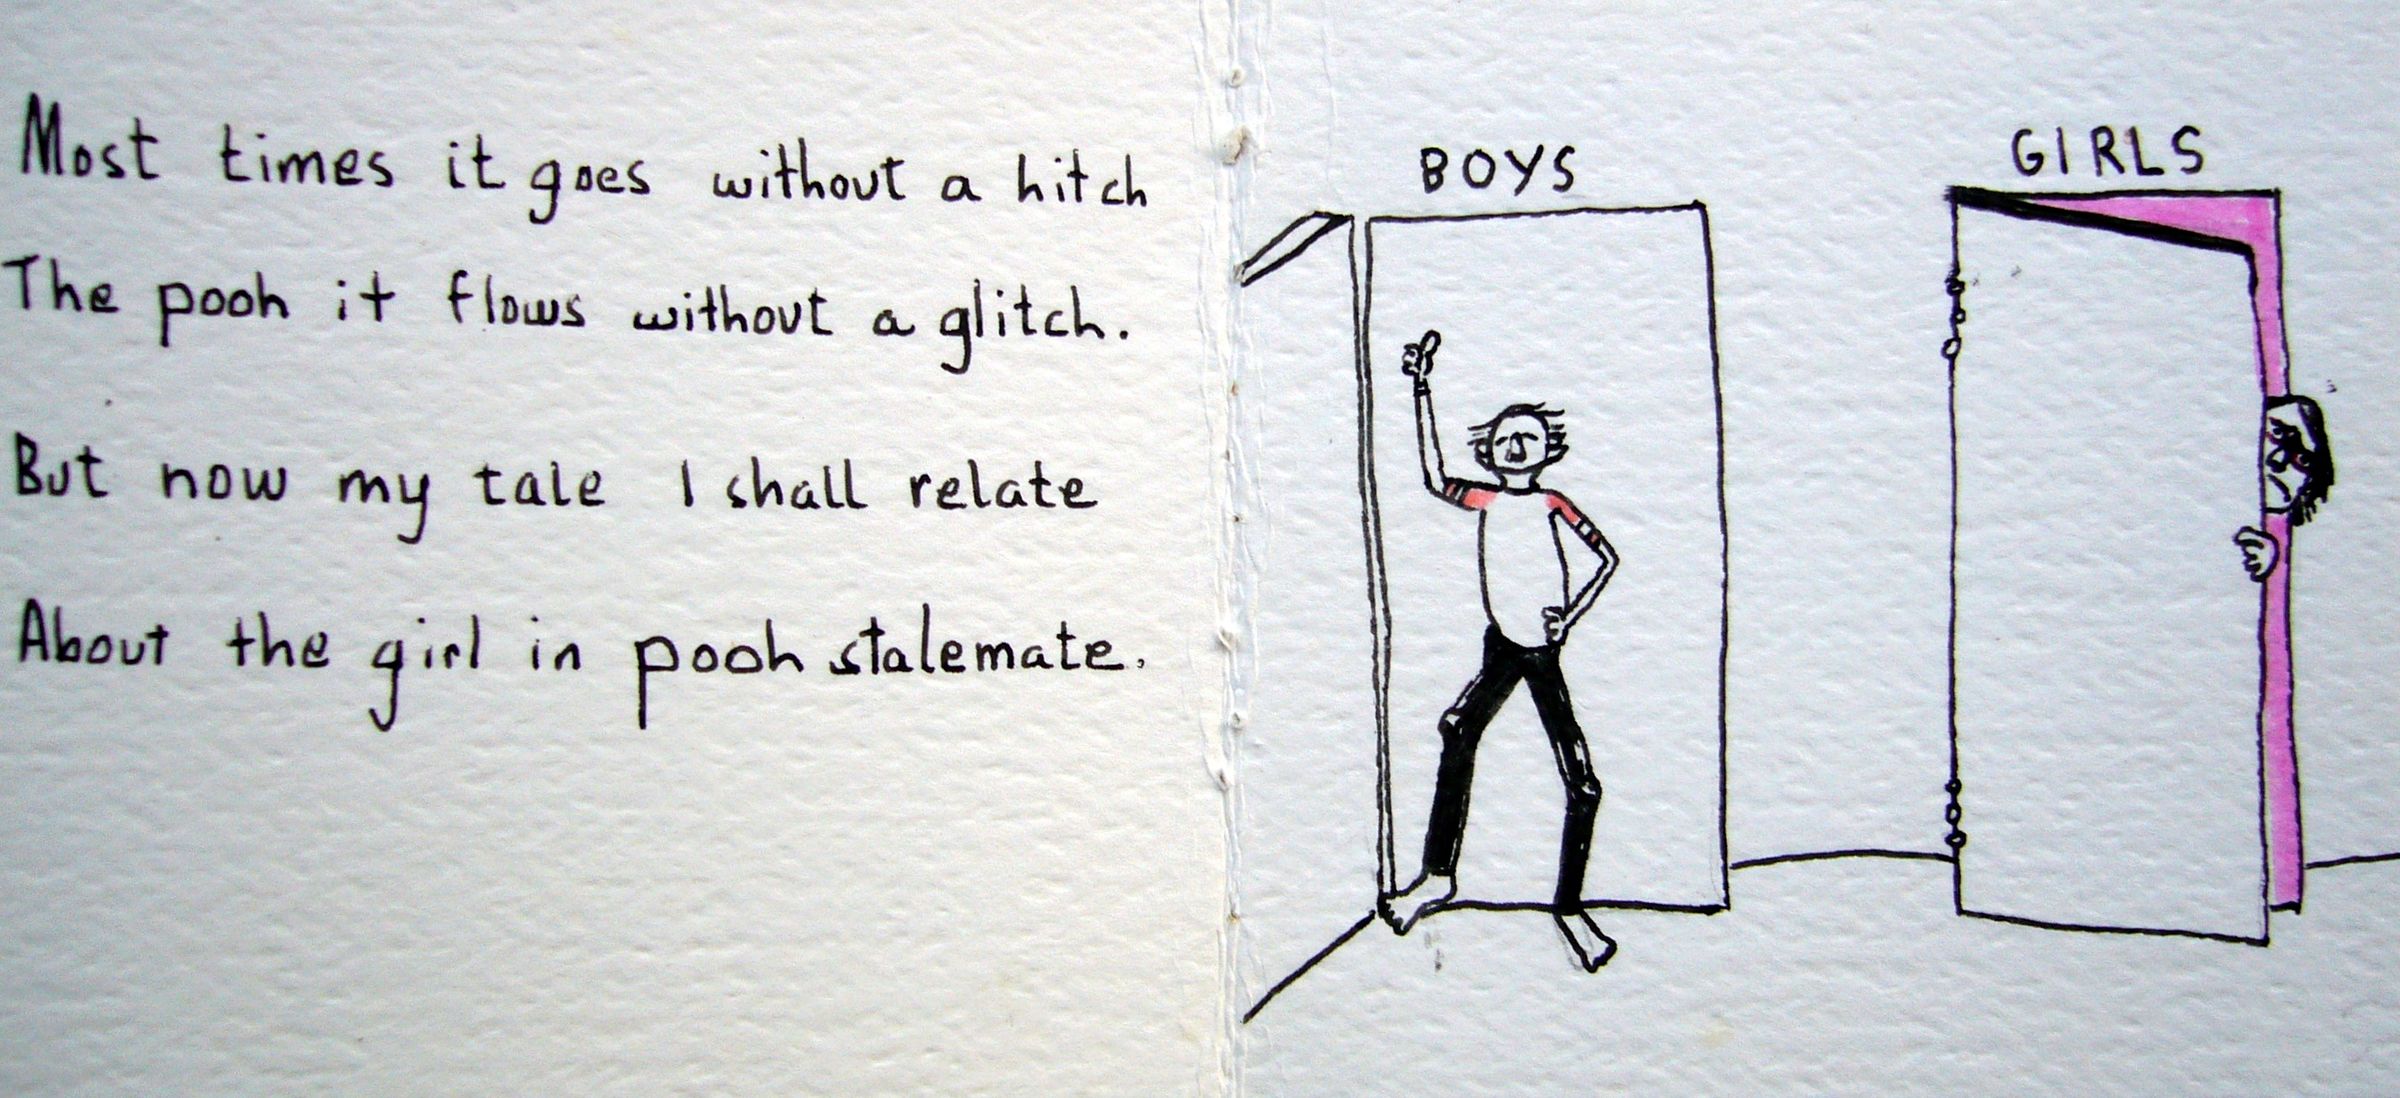 Most times it goes without a hitch
The pooh it flows without a glitch.
But now my tale I shall relate
About the girl in pooh stalemate.
BOYS
GIRLS